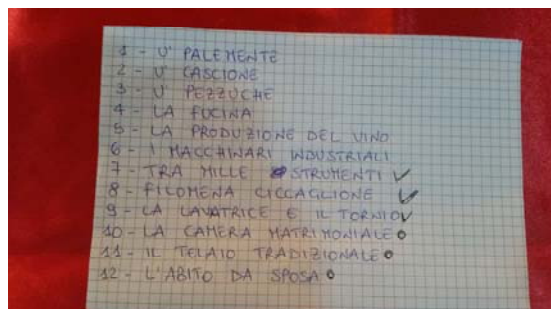 1 - U' PALEMENTE
2 - U' CASCIONE
3 - U' PEZZUCHE
4 - LA FUCINA
5 - LA PRODUZIONE DEL VINO
6 - I MACCHINARI INDUSTRIALI
7 - TRA MILLE STRUMENTI ✓
8 - FILOMENA CICCAGLIONE ✓
9 - LA LAVATRICE E IL TORNIO ✓
10 - LA CAMERA MATRIMONIALE o
11 - IL TELAIO TRADIZIONALE o
12 - L'ABITO DA SPOSA o